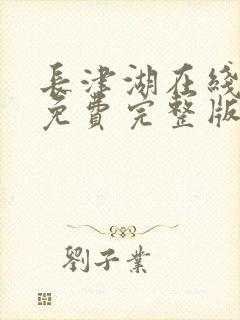 長津湖在綫
免費完整版
劉子業